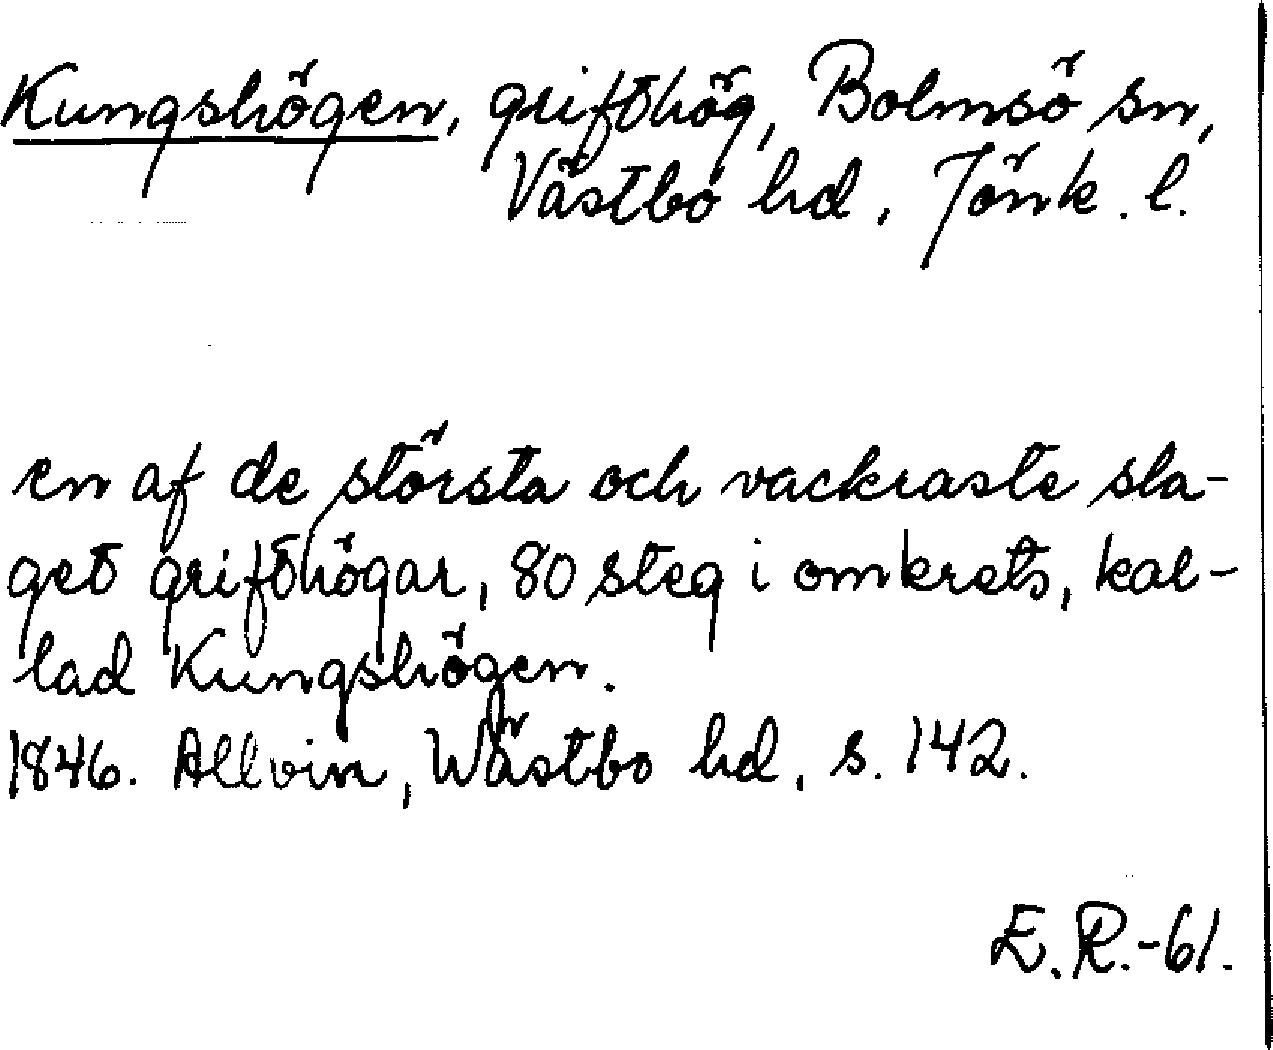 Kungshögen, grifthög, Bolmsö sn,
Västbo hd, Jönk. l.
en af de största och vackraste sla-
get grifthögar, 80 steg i omkrets, kal-
lad Kungshögen.
1846. Allvin, Wästbo hd, s. 142.
E.R.-61.